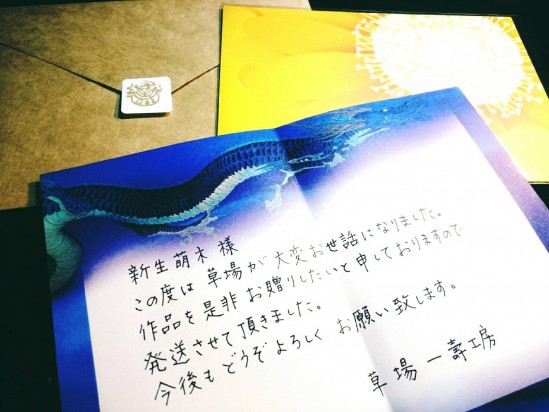 新生萌木 様
この度は 草場が 大変お世話になりました。
作品を是非 お贈りしたいと申しておりますので
発送させて頂きました。
今後もどうぞよろしく お願い致します。
草場 一壽工房